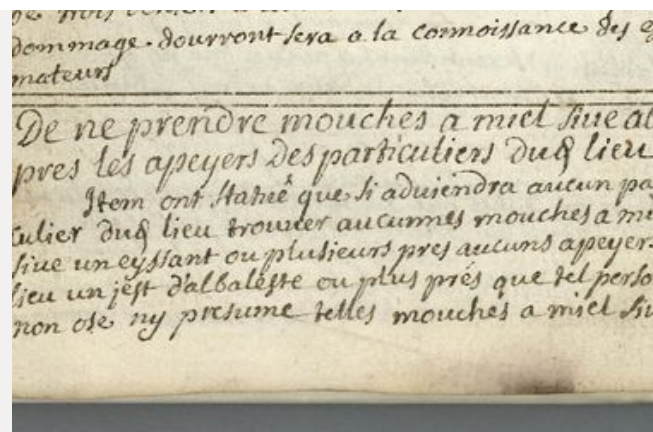 de trois
dommage dourront sera a la connoissance des
mateurs
De ne prendre mouches a miel sive
pres les apeyers des particuliers dud lieu
Item ont statué que si adviendra aucun pa
culier dud lieu trouver aucunnes mouches a mi
sive un eyssant ou plusieurs pres aucuns apeyers
lieu un jest d'albaleste ou plus prés que tel perso
non ose ny presume telles mouches a miel siv